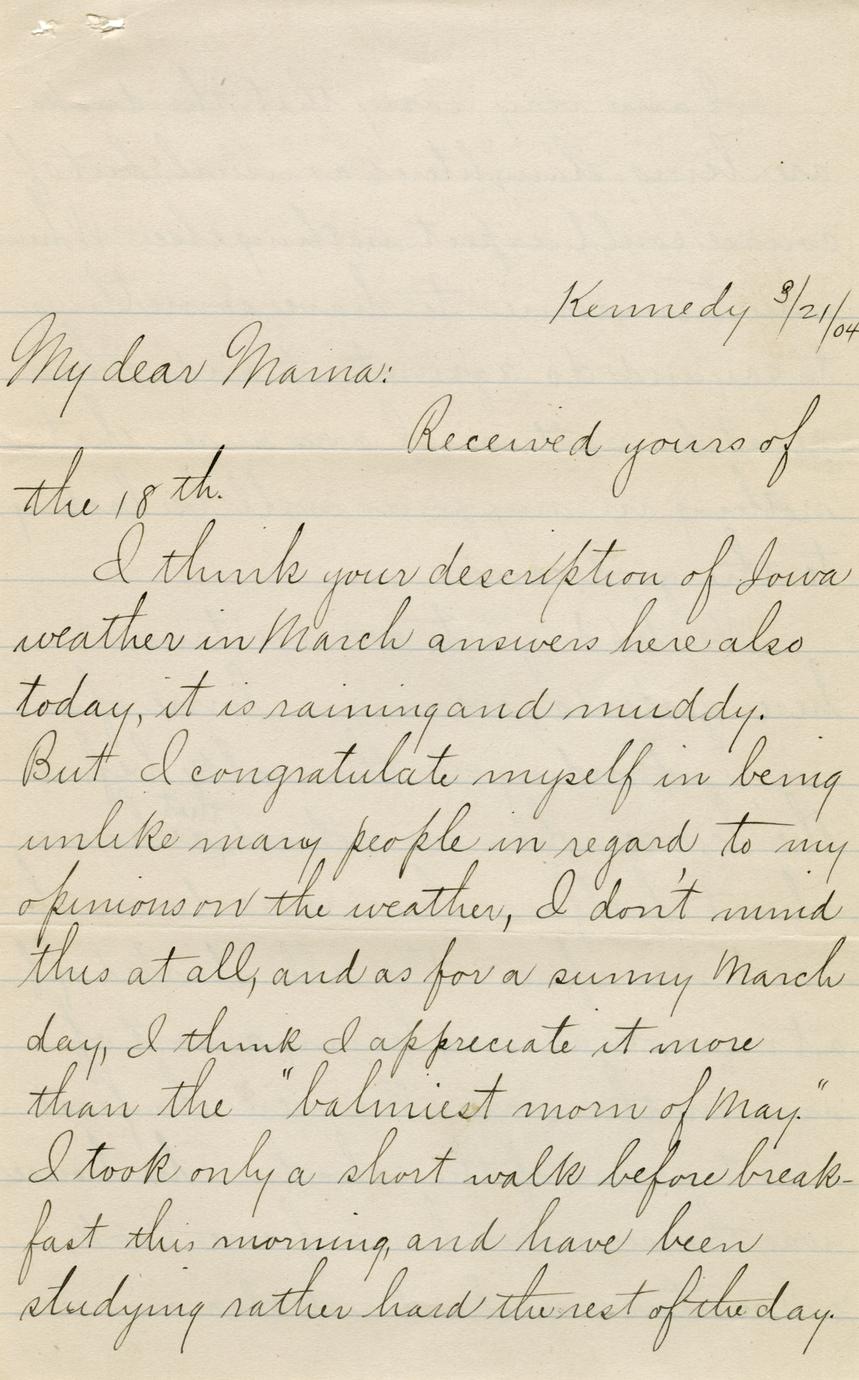 Kennedy 3/21/04
My dear Mama:
Received yours of
the 18th.
I think your description of Iowa
weather in March answers here also
today, it is raining and muddy.
But I congratulate myself in being
unlike many people in regard to my
opinions on the weather, I don't mind
this at all, and as for a sunny March
day, I think I appreciate it more
than the "balmiest morn of May."
I took only a short walk before break-
fast this morning, and have been
studying rather hard the rest of the day.